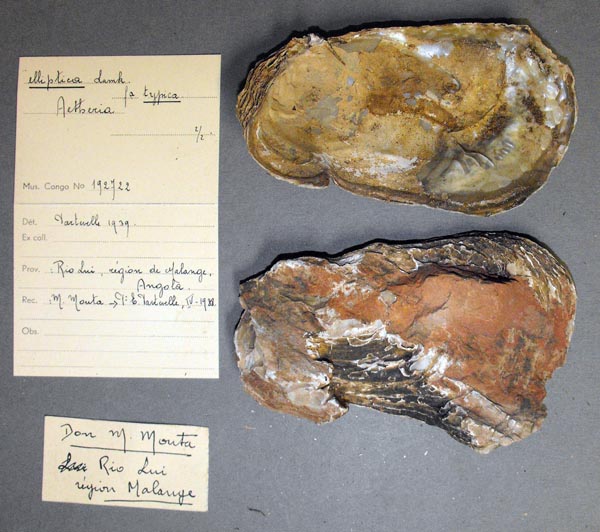 elliptica Lamk.
fa typica
Aetheria
2/2
Mus. Congo No 192722
Dét. Dartevelle 1939.
Ex coll.
Prov. : Rio Lui, région de Malange,
Angola.
Rec. : M. Mouta → Dr E. Dartevelle, IV-1938.
Obs.
Don M. Mouta
Rio Lui
région Malange